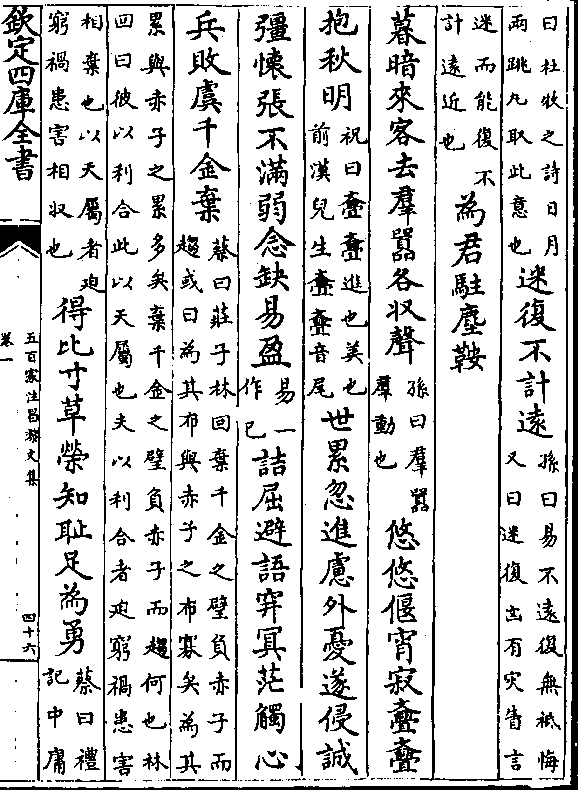 曰杜牧之詩日月兩跳丸取此意也迷復不計遠孫曰易不遠復無祇悔又曰迷復凶有災眚言
迷而能復不計遠近也為君駐塵鞍
暮暗來客去羣囂各収聲孫曰羣囂羣動也悠悠偃宵寂亹亹
抱秋明祝曰亹亹進也美也前漢兒生亹亹音尾世累忽進慮外憂遂侵誠
彊懷張不滿弱念缺易盈易一作已詰屈避語穽冥茫觸心
兵敗虞千金棄蔡曰莊子林回棄千金之璧負赤子而趨或曰為其布與赤子之布寡矣為其
累與赤子之累多矣棄千金之璧負赤子而趨何也林回曰彼以利合此以天屬也夫以利合者迫窮禍患害
相棄也以天屬者迫窮禍患害相収也得比寸草榮知恥足為勇蔡曰禮記中庸
欽定四庫全書
五百家注昌黎文集
卷一
四十六